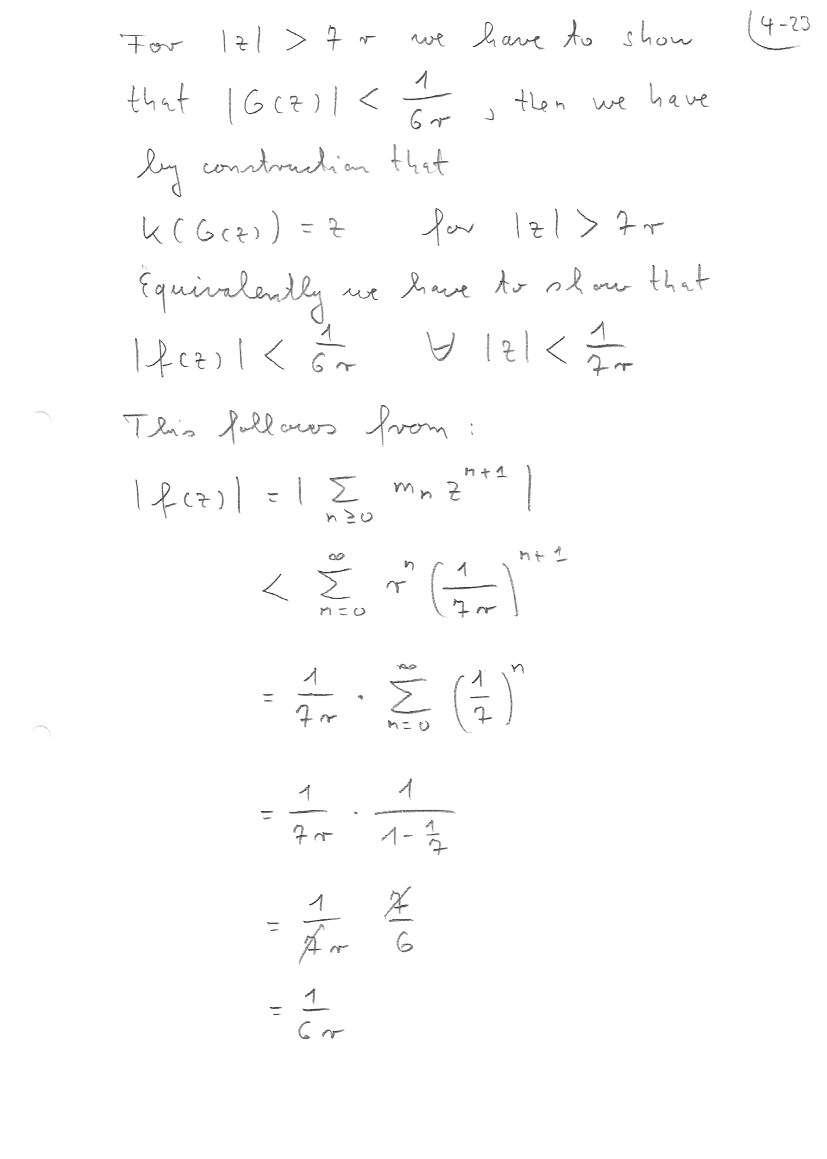 4-23
For |z| > 7r we have to show
that |G(z)| < 1/(6r), then we have
by construction that
K(G(z)) = z for |z| > 7r
Equivalently we have to show that
|f(z)| < 1/(6r) ∀ |z| < 1/(7r)
This follows from:
|f(z)| = | ∑_{n≥0} m_n z^{n+1} |
< ∑_{n=0}^{∞} r^n (1/(7r))^{n+1}
= 1/(7r) · ∑_{n=0}^{∞} (1/7)^n
= 1/(7r) · 1/(1 - 1/7)
= 1/(7r) 7/6
= 1/(6r)